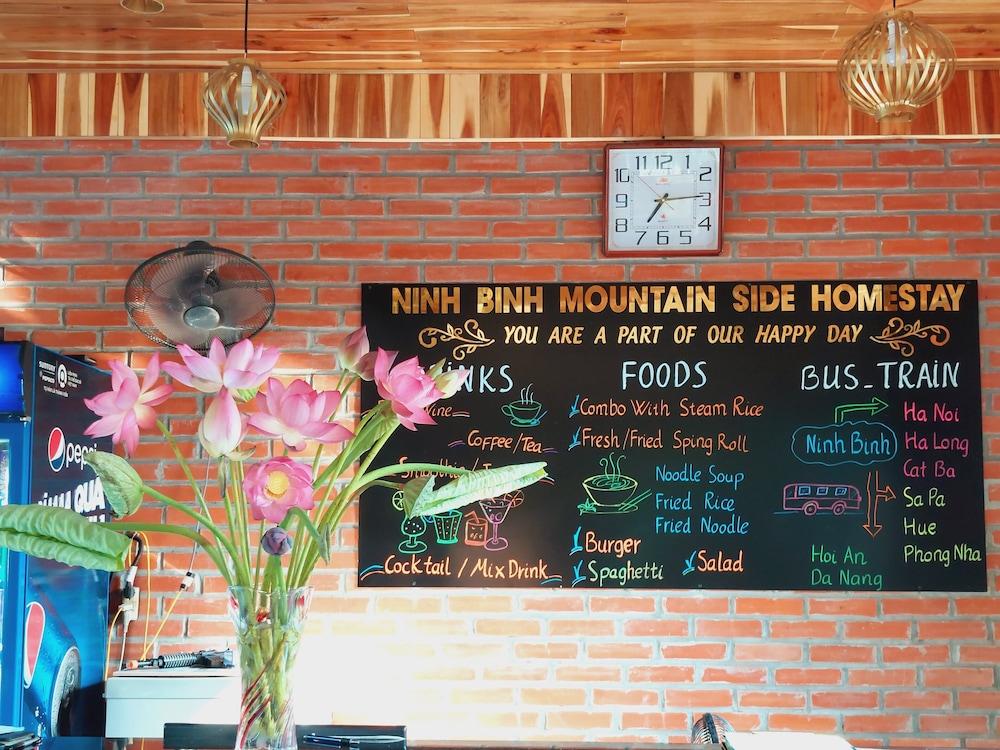 11 12 1
10 2
9 3
8 4
7 6 5
NINH BINH MOUNTAIN SIDE HOMESTAY
YOU ARE A PART OF OUR HAPPY DAY
FOODS
BUS_TRAIN
Combo With Steam Rice
Coffee/Tea
Fresh/Fried Sping Roll
Noodle Soup
Fried Rice
Fried Noodle
Burger
Spaghetti
Salad
Cocktail / Mix Drink
Ninh Binh
Ha Noi
Ha Long
Cat Ba
Sa Pa
Hue
Phong Nha
Hoi An
Da Nang
SUNTORY
PEPSICO
pepsi
QUA